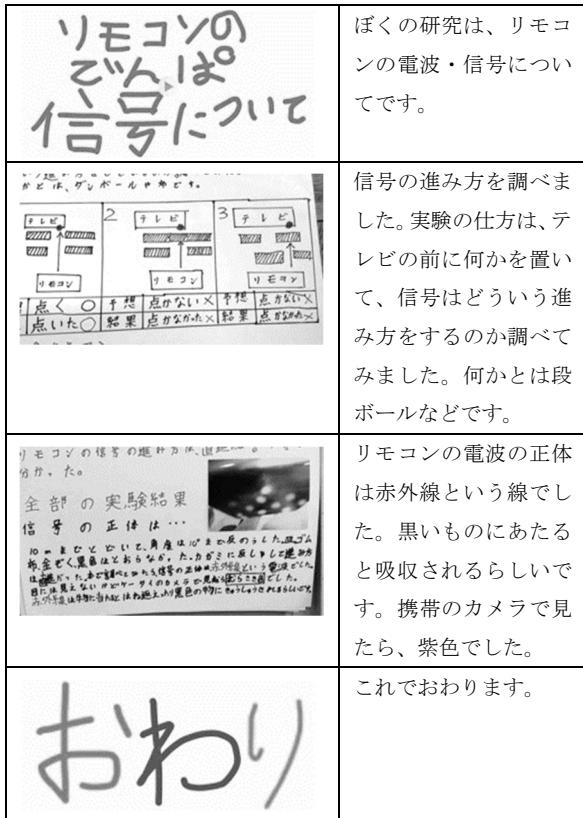 リモコンの
でんぱ
信号について
ぼくの研究は、リモコ
ンの電波・信号につい
てです。
かとは、ダンボールや布です。
テレビ
2
テレビ
3
テレビ
リモコン
リモコン
リモコン
点く ○
予想
点かない×
予想
点かない×
点いた○
結果
点かなかった×
結果
点かなかった×
信号の進み方を調べま
した。実験の仕方は、テ
レビの前に何かを置い
て、信号はどういう進
み方をするのか調べて
みました。何かとは段
ボールなどです。
リモコンの信号の進み方は、
分かった。
全部の実験結果
信号の正体は…
リモコンの電波の正体
は赤外線という線でし
た。黒いものにあたる
と吸収されるらしいで
す。携帯のカメラで見
たら、紫色でした。
おわり
これでおわります。